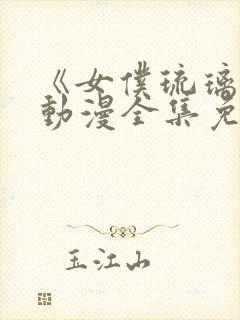 《女僕琉璃
動漫全集免
玉江山